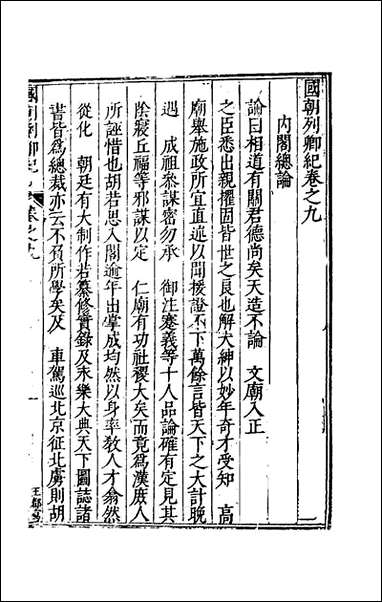 國朝列卿紀卷之九
內閣總論
論曰相道有關君德尚矣天造不論　文廟入正
之臣悉出親擢固皆世之良也解大紳以妙年奇才受知　高
廟舉施政所宜直述以聞援證不下萬餘言皆天下之大計晚
遇　成祖參謀密勿承　御注蹇義等十人品論確有定見其
陰寢丘福等邪謀以定　仁廟有功社稷大矣而竟爲漢庶人
所誣惜也胡若思入閣逾年出掌成均然以身率教人才翕然
從化　朝廷有大制作若纂修實錄及永樂大典天下圖誌諸
書皆爲總裁亦云不負所學矣及　車駕巡北京征北虜則胡
國朝列卿紀
卷之九
一